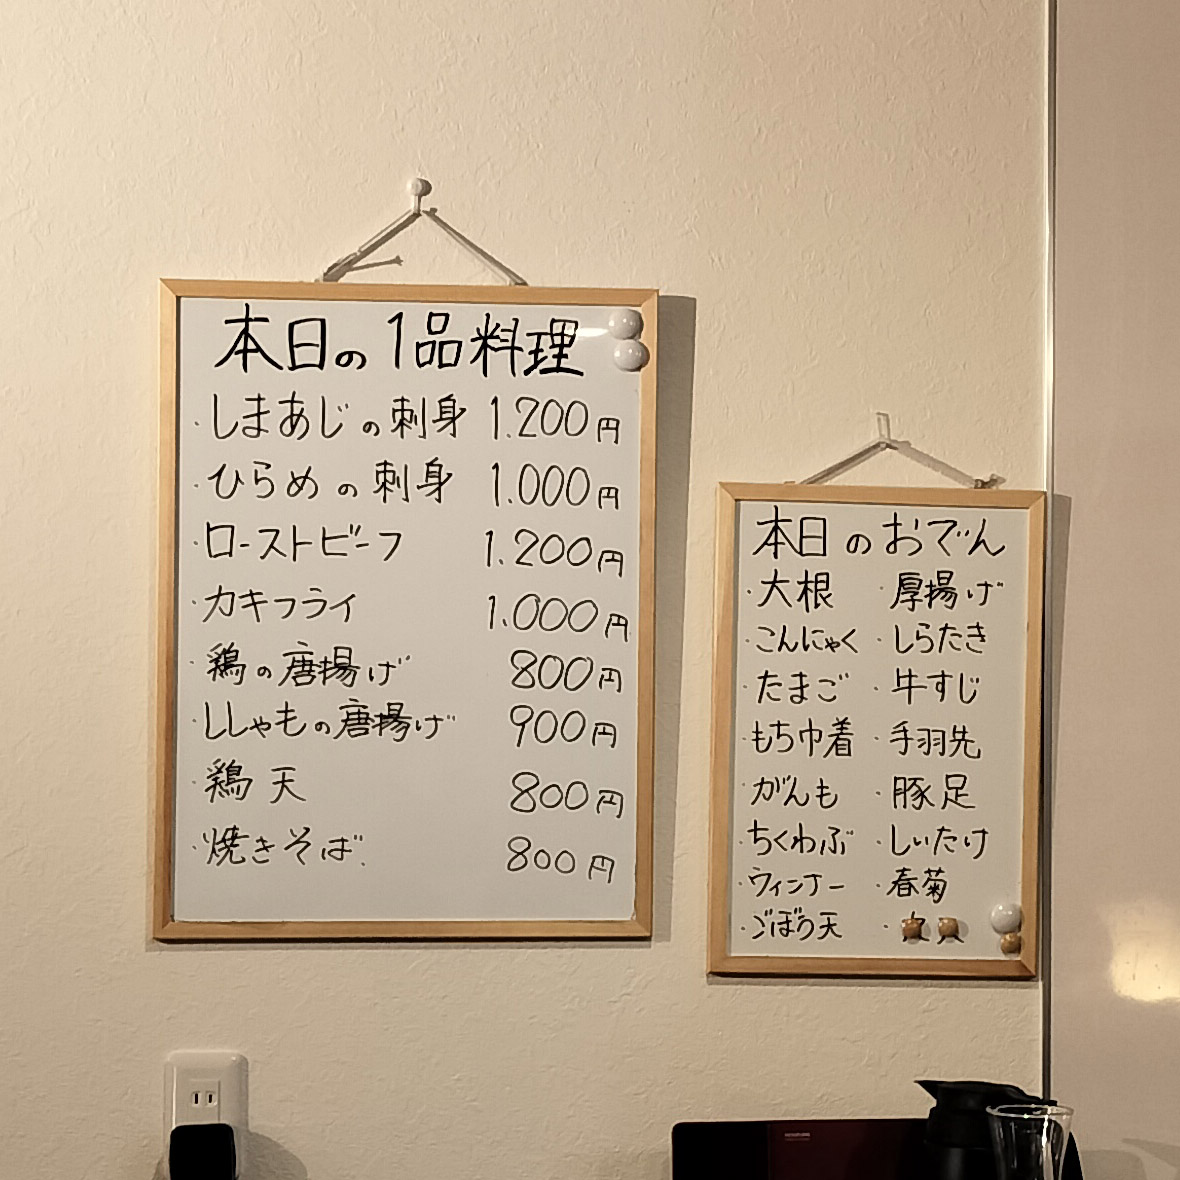 本日の1品料理
・しまあじの刺身 1.200円
・ひらめの刺身 1.000円
・ローストビーフ 1.200円
・カキフライ 1.000円
・鶏の唐揚げ 800円
・ししゃもの唐揚げ 900円
・鶏天 800円
・焼きそば. 800円
本日のおでん
・大根 ・厚揚げ
・こんにゃく ・しらたき
・たまご ・牛すじ
・もち巾着 ・手羽先
・がんも ・豚足
・ちくわぶ ・しいたけ
・ウィンナー ・春菊
・ごぼう天 ・